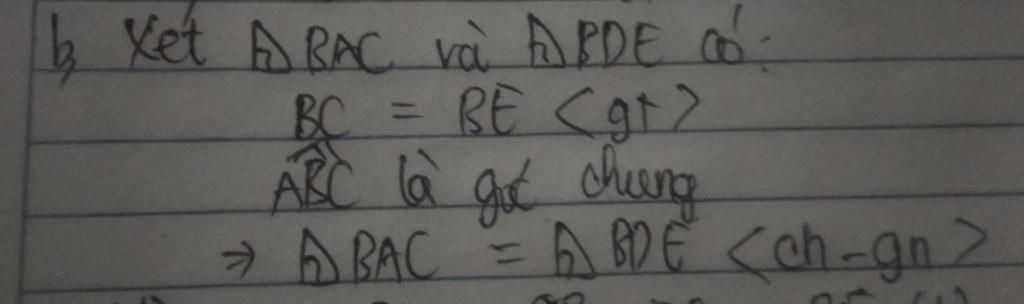 b, Xét ⊿BAC và ⊿BDE có:
BC = BE <gt>
ABC là góc chung
⇒ ⊿BAC = ⊿BDE <ch-gn>